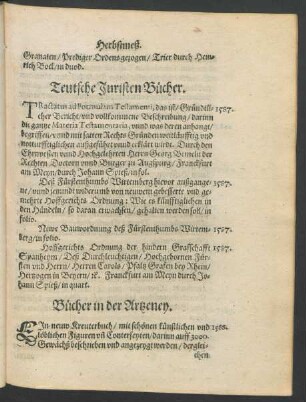 Herbstmeß.
Granaten / Prediger Ordens gezogen / Trier durch Hein-
rich Bock / in duod.
Teutsche Juristen Bücher.
Tractatus ab Testamenti, das ist / Gründtli- 1587.
cher Bericht / vnd vollkommene Beschreibung / darinn
die gantze Materia Testamentaria, vnnd was deren anhang /
begriffen / vnnd mit satten Rechts Gründen weitläufftig vnd
notturfftiglichen außgeführt vnnd erklärt wirdt. Durch den
Ehrnvesten vnnd Hochgelehrten Herrn Georg der
Rechten Doctorn vnnd Burger zu Augspurg / Franckfurt
am Meyn / durch Johann Spieß / in fol.
Deß Fürstenthumbs Wirtemberg hievor außgange- 1587.
ne / vnnd jetzund widerumb von neuwem gebesserte vnd ge-
mehrte Hoffgerichts Ordnung: Wie es künfftiglichen in
den Händeln / so daran erwachsen / gehalten werden soll / in
folio.
Newe Bauwordnung deß Fürstenthumbs Wirtem- 1587.
berg / in folio.
Hoffgerichts Ordnung der hindern Graffschafft 1587.
Spanheym / Deß Durchleuchtigen / Hochgebornen Für-
sten vnd Herrn / Herren Carols / Pfaltz Grafen bey Rhein /
Hertzogen in Beyern / ꝛc. Franckfurt am Meyn durch Jo-
hann Spieß / in quart.
Bücher in der Artzeney.
EIn neuw Kreuterbuch / mit schönen künstlichen vnd 1588.
löblichen Figuren vñ Conterfeyten / darinn auff 3000.
Gewächß beschrieben vnd angezeygt werden / derglei-
chen